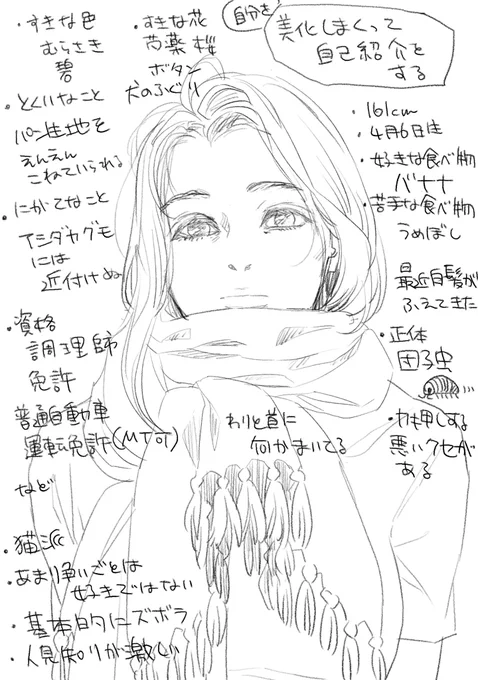 自分を
美化しまくって
自己紹介を
する
・すきな色
むらさき
碧
・すきな花
芍薬 桜
ボタン
犬のふぐり
・とくいなこと
パン生地を
えんえん
こねていられる
・にがてなこと
アシダカグモ
には
近付けぬ
・資格
調理師
免許
普通自動車
運転免許(MT可)
など
・猫派
・あまり争いごとは
好きではない
・基本的にズボラ
・人見知りが激しい
わりと首に
何かまいてる
・161cm
・4月6日生
・好きな食べ物
バナナ
・苦手な食べ物
うめぼし
最近白髪が
ふえてきた
・正体
団子虫
・力押しする
悪いクセが
ある